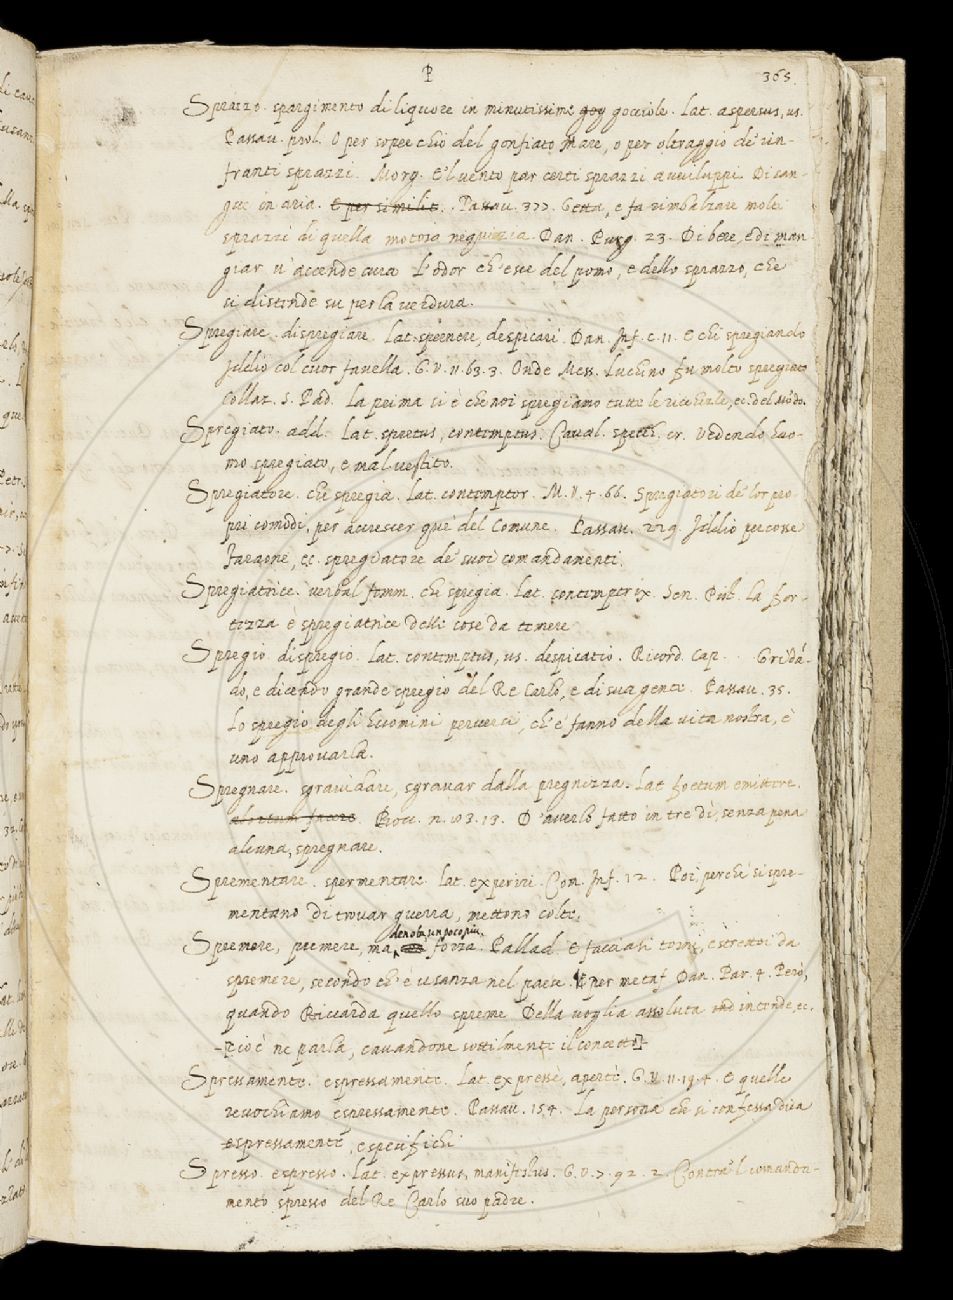 P
365
Sprazzo. spargimento di liquore in minutissime gocciole. Lat. aspersus, us.
Passav. prol. O per soperchio del gonfiato mare, o per oltraggio de' rin-
franti sprazzi. Morg. E'l vento par certi sprazzi avviluppi Di san-
gue in aria. E per similit. Passav. 377. Getta, e fa rimbalzare molti
sprazzi di quella motosa negrizia. Dan. Purg. 23. Di bere, e di man
giar n'accende cura L'odor ch'esce del pomo, e dello sprazzo, che
si distende su per la verdura.
Spregiare. dispregiare. Lat. spernere, despicari. Dan. Inf. c. 11. E chi spregiando
Iddio col cuor favella. G. V. 11. 63. 3. Onde Mess. Luchino fu molto spregiato
Collaz. S. Pad. La prima si è che noi spregiamo tutte le ricchezze, ec. del Mōdo.
Spregiato. add. Lat. spretus, contemptus. Caval. specch. cr. Vedendo huo-
mo spregiato, e mal vestito.
Spregiatore. che spregia. Lat. contemptor. M. V. 4. 66. Spregiatori de' lor pro-
pri comodi, per accrescer que' del Comune. Passav. 229. Iddio percosse
Faraone, ec. spregiatore de' suoi comandamenti.
Spregiatrice. verbal femm. che spregia. Lat. contemptrix. Sen. Pist. La for-
tezza è spregiatrice delle cose da temere
Spregio. dispregio. Lat. contemptus, us. despicatio. Ricord. Cap. Gridá-
do, e dicendo grande spregio del Re Carlo, e di sua gente. Passav. 35.
Lo spregio degli huomini perversi, ch'e' fanno della vita nostra, è
uno approvarla.
Spregnare. sgravidare, sgravar dalla pregnezza. Lat foetum emittere.
abortum facere. Bocc. n. 83. 13. D'averlo fatto in tre dì, senza pena
alcuna, spregnare.
Sprementare. spermentare. Lat. experiri. Con. Inf. 12. Poi, perchè si spre-
mentano di trovar guerra, mettono colte.
denota un poco piu
Spremere, premere, ma forza. Pallad. E facciasi torni, e strettoi da
spremere, secondo ch'è usanza nel paese. E per metaf Dan. Par. 4. Però,
quando Riccarda quello spreme Della voglia assoluta intende, ec.
cioè ne parla, cavandone sottilmente il concetto
Spressamente. espressamente. Lat. expressè, apertè. G. V. 11. 19. 4. E quelle
revochiamo espressamente. Passav. 154. La persona che si confessa dica
espressamente, e specifichi
Spresso. espresso. Lat. expressus, manifestus. G. V. 7. 92. 2. Contra'l comanda-
mento spresso del Re Carlo suo padre.